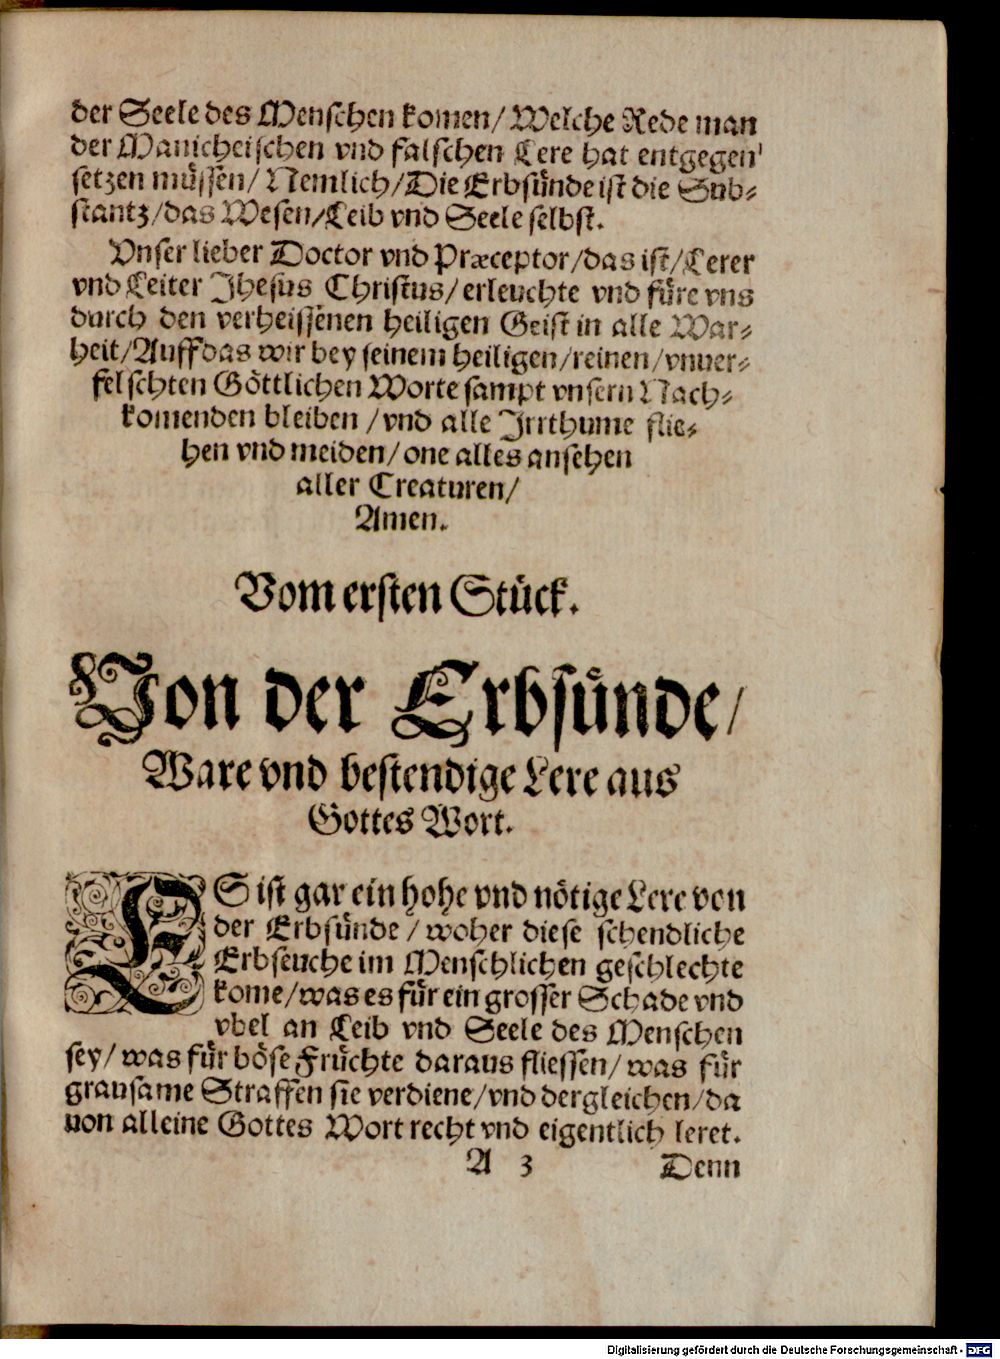 der Seele des Menschen komen/ Welche Rede man
der Manicheischen vnd falschen Lere hat entgegen
setzen müssen/ Nemlich/Die Erbsünde ist die Sub⸗
stantz/das Wesen/Leib vnd Seele selbst.
Vnser lieber Doctor vnd Præceptor/das ist/Lerer
vnd Leiter Jhesus Christus/erleuchte vnd füre vns
durch den verheissenen heiligen Geist in alle War⸗
heit/Auff das wir bey seinem heiligen/reinen/vnuer⸗
felschten Göttlichen Worte sampt vnsern Nach⸗
komenden bleiben /vnd alle Jrrthume flie⸗
hen vnd meiden/one alles ansehen
aller Creaturen/
Amen.
Vom ersten Stück.
Von der Erbsünde/
Ware vnd bestendige Lere aus
Gottes Wort.
ES ist gar ein hohe vnd nötige Lere von
der Erbsünde /woher diese schendliche
Erbseuche im Menschlichen geschlechte
kome/was es für ein grosser Schade vnd
vbel an Leib vnd Seele des Menschen
sey/ was für böse Früchte daraus fliessen/ was für
grausame Straffen sie verdiene/vnd dergleichen/da
uon alleine Gottes Wort recht vnd eigentlich leret.
A 3 Denn
Digitalisierung gefördert durch die Deutsche Forschungsgemeinschaft - DFG